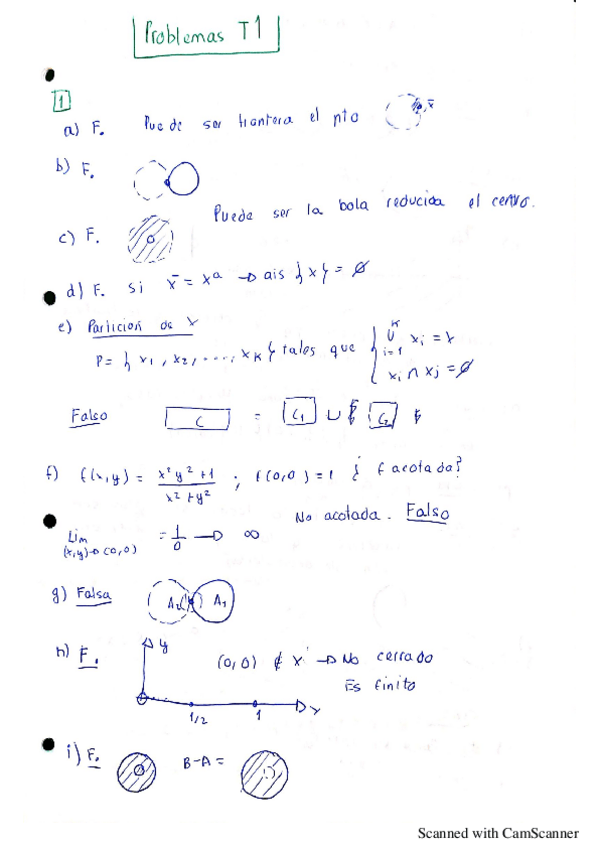 Problemas T1
1
a) F. Puede ser frontera el pto x̄
b) F.
Puede ser la bola reducida el centro.
c) F.
d) F. si x̄ = xᵃ → ais {x} = ∅
e) Particion de X
P = { x₁, x₂, ...., x_K } tales que { K ∪ i=1 xi = X
xi ∩ xj = ∅
Falso C = C₁ ∪ C₂
f) f(x,y) = x²y²+1 / x²+y² ; f(0,0) = 1 ¿ f acotada?
No acotada. Falso
Lim (x,y)→(0,0) = 1/0 → ∞
g) Falsa A₂ A₁
h) F. y (0,0) ∉ X → No cerrado
Es finito
1/2 1 x
i) F. B-A =
Scanned with CamScanner